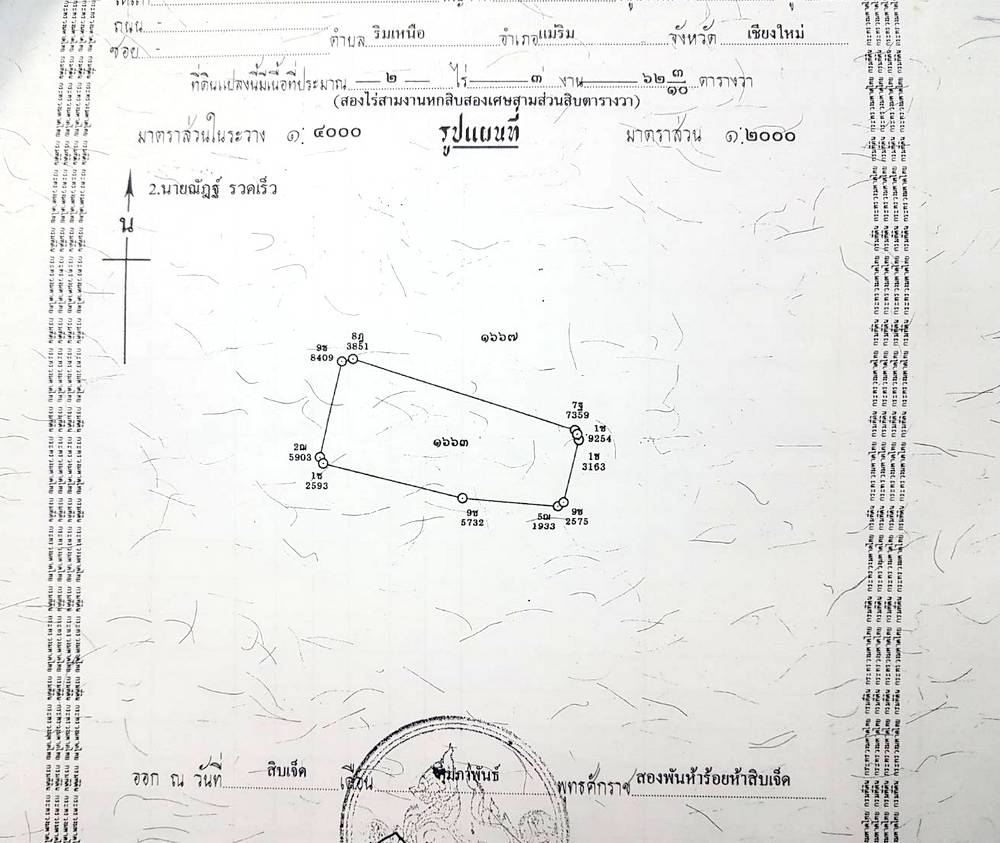 ถนน -
ซอย - ตำบล ริมเหนือ อำเภอ แม่ริม จังหวัด เชียงใหม่
ที่ดินแปลงนี้มีเนื้อที่ประมาณ ๒ ไร่ ๓ งาน ๖๒ ๓/๑๐ ตารางวา
(สองไร่สามงานหกสิบสองเศษสามส่วนสิบตารางวา)
มาตราส่วนในระวาง ๑:๔๐๐๐ รูปแผนที่ มาตราส่วน ๑:๒๐๐๐
2.นายณัฎฐ์ รวดเร็ว
น
๑๖๖๗
8ฎ
3851
9ช
8409
7ฐ
7359
1ช
9254
๑๖๖๓
2ฌ
5903
1ช
3163
1ช
2593
9ช
5732
5ฌ
1933
9ช
2575
ออก ณ วันที่ สิบเจ็ด เดือน กุมภาพันธ์ พุทธศักราช สองพันห้าร้อยห้าสิบเจ็ด